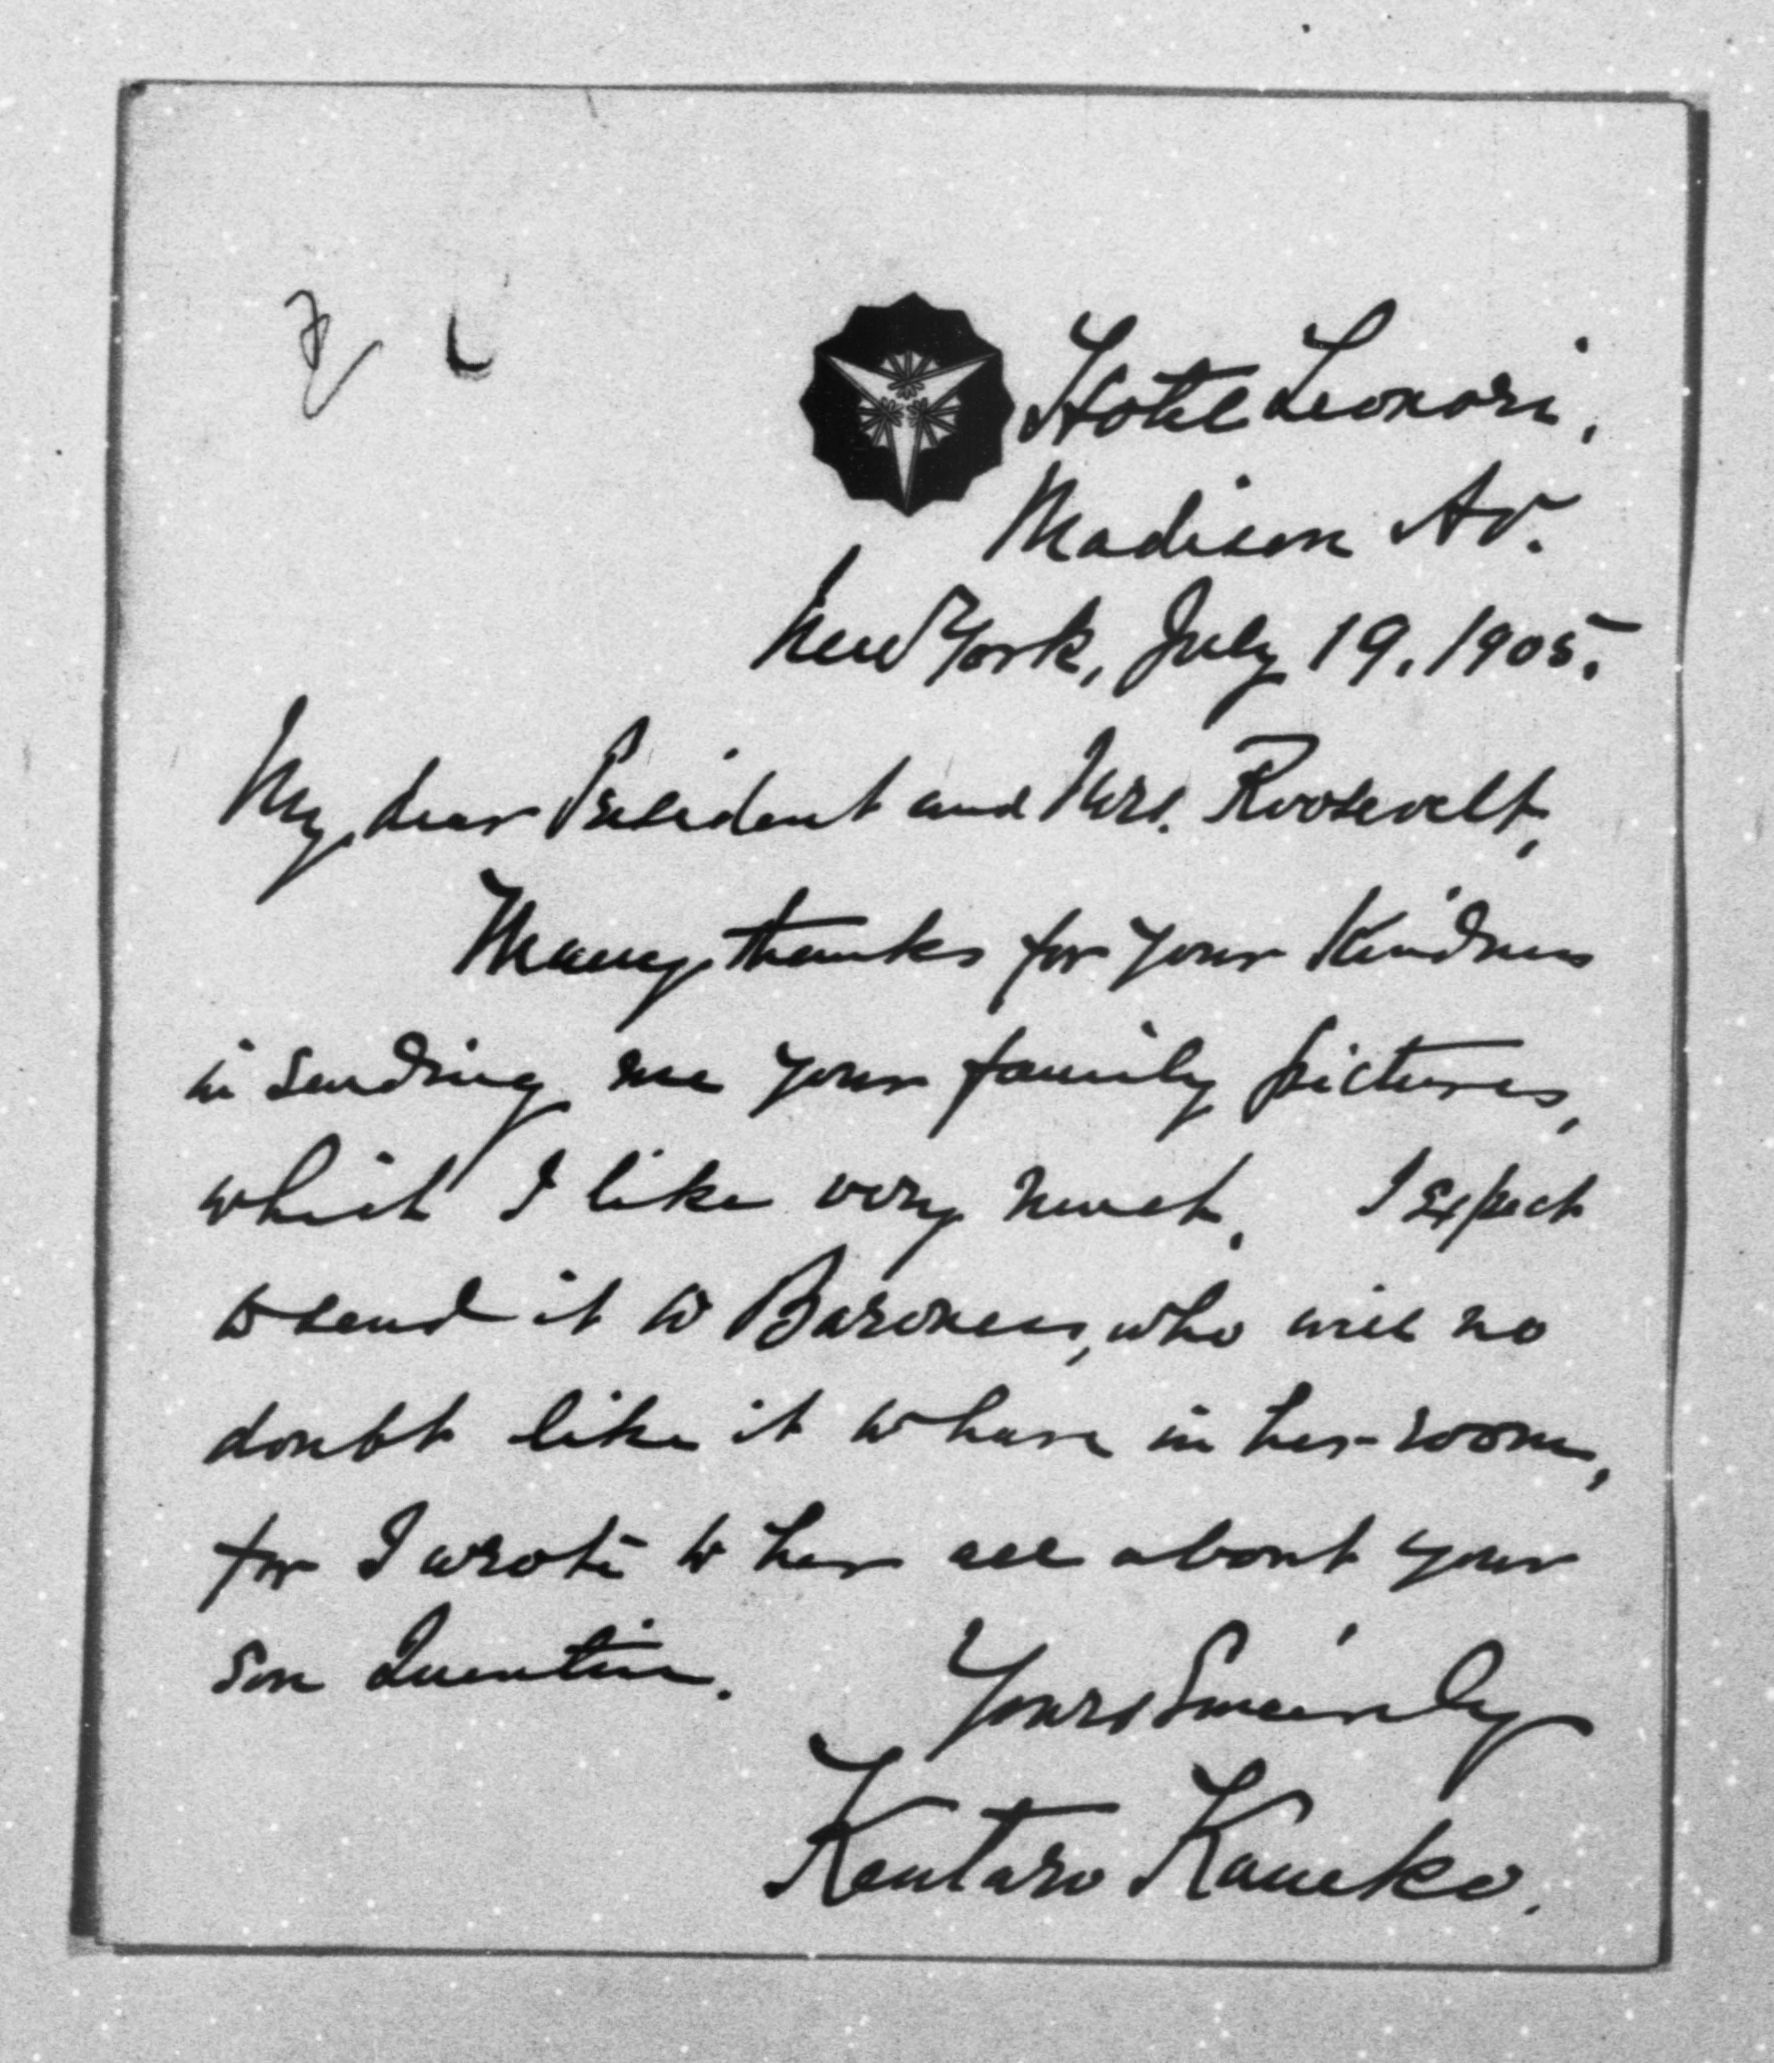 Hotel Leonori,
Madison Av.
New York, July 19. 1905.
My dear President and Mrs. Roosevelt,
Many thanks for your kindness
in sending me your family pictures,
which I like very much. I expect
to send it to Baroness, who will no
doubt like it to have in her room,
for I wrote to her all about your
son Quentin.
Yours Sincerely
Kentaro Kaneko.